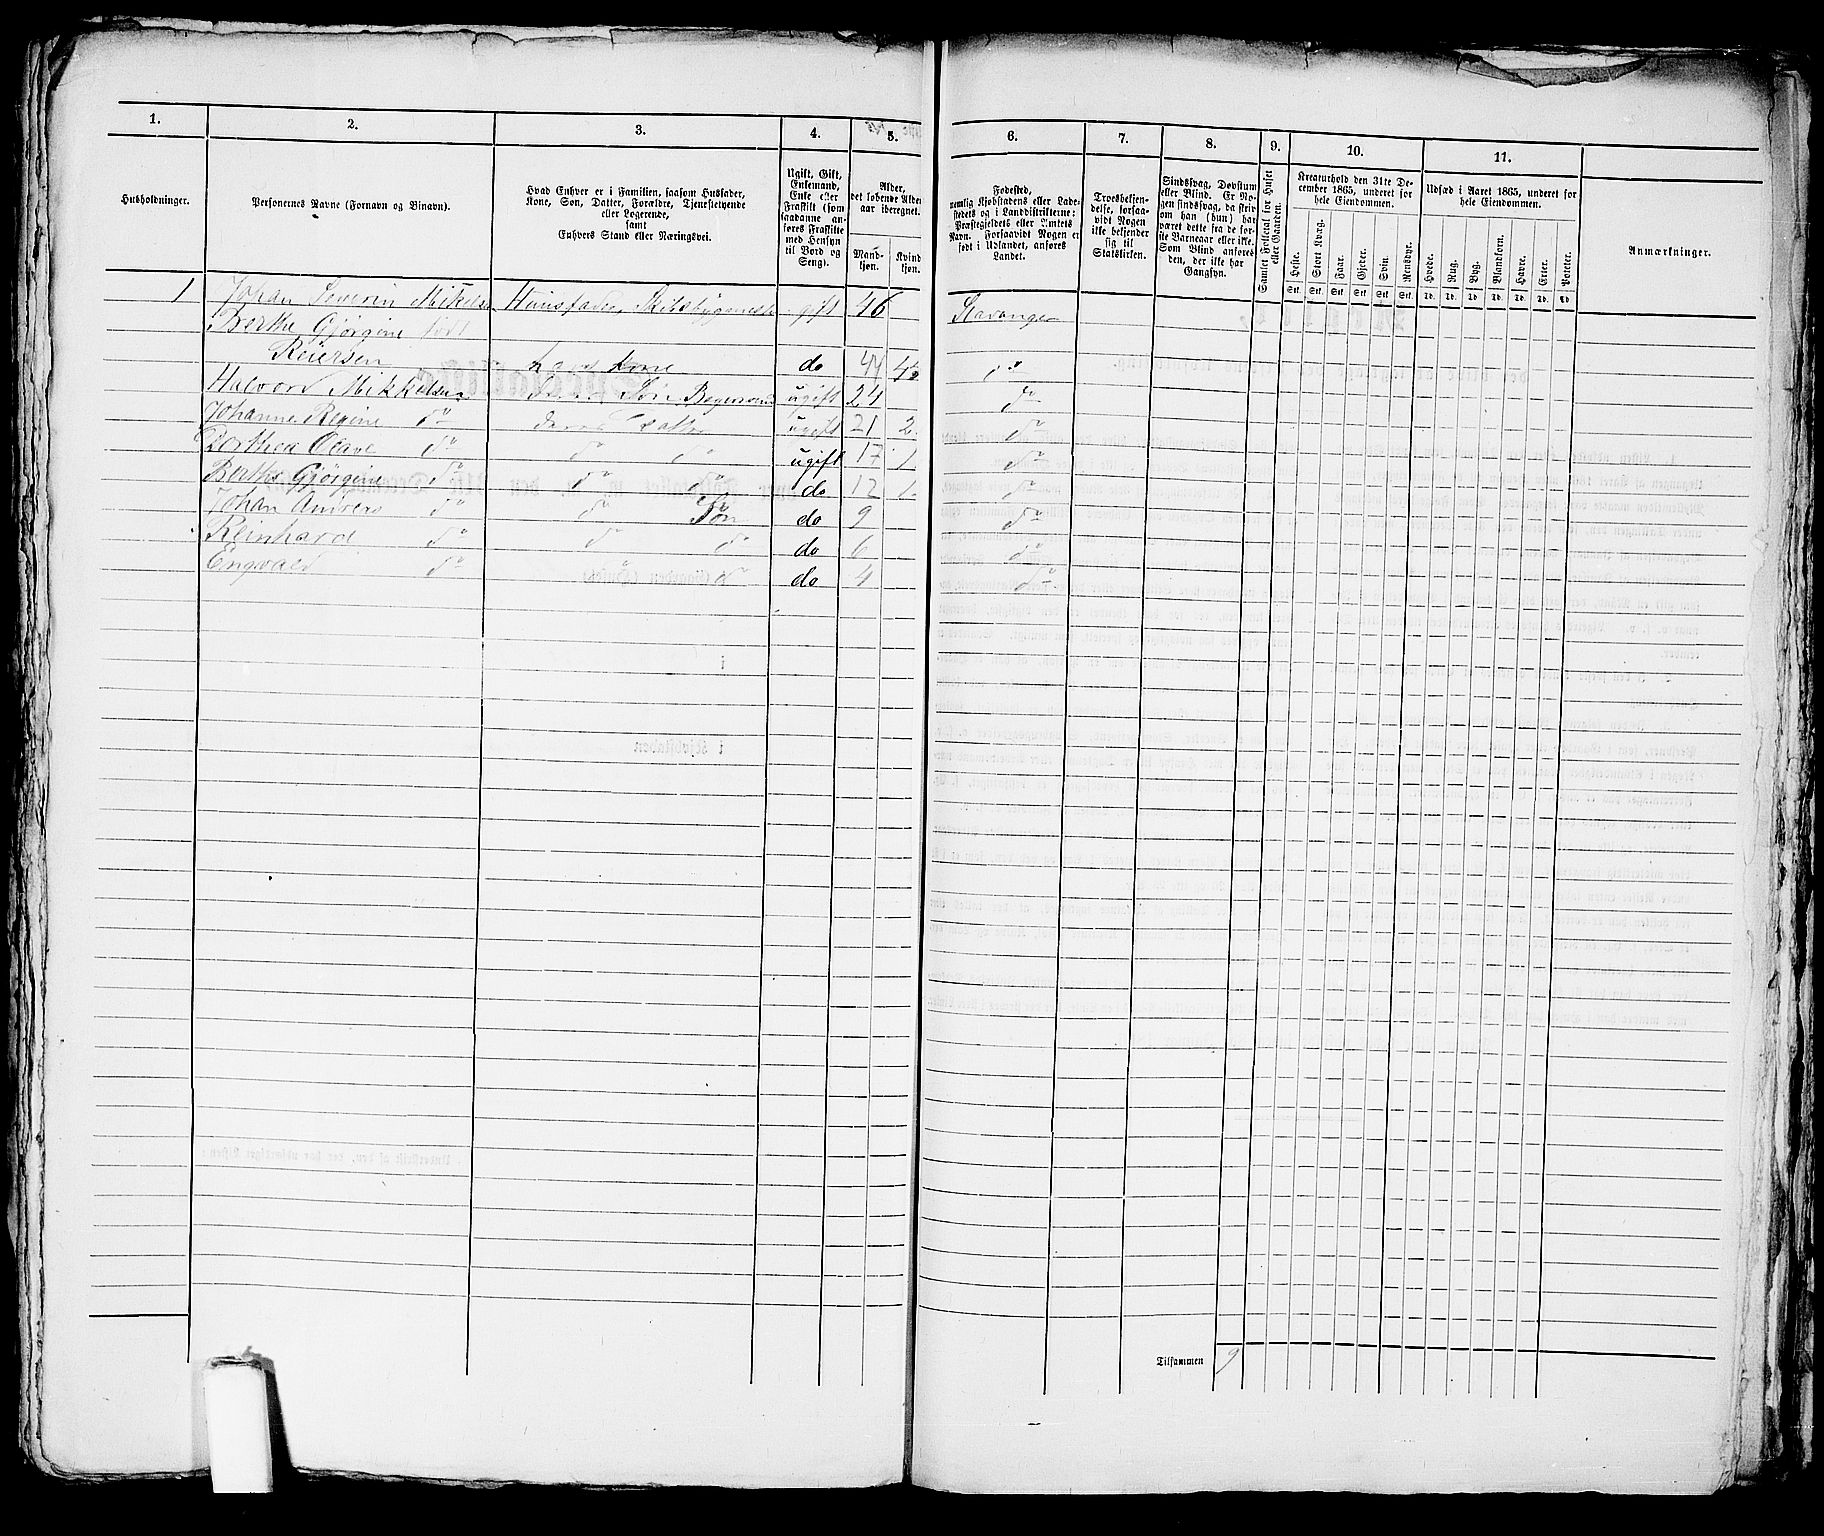 1. 2. 3. 4. 5. 6. 7. 8. 9. 10. 11.
Husholdninger.
Personernes Navne (Fornavn og Binavn).
Hvad Enhver er i Familien, saasom Husfader,
Kone, Søn, Datter, Forældre, Tjenestetyende
eller Logerende,
samt
Enhvers Stand eller Næringsvei.
Ugift, Gift,
Enkemand,
Enke eller
Fraskilt (som
saadanne an-
føres Fraskilte
med Hensyn
til Bord og
Seng).
Alder,
det løbende Alder
aar iberegnet.
Mand-
kjøn.
Kvind
kjøn.
Fødested,
nemlig Kjøbstadens eller Lade-
stedets og i Landdistrikterne:
Præstegjeldets eller Amtets
Navn. Forsaavidt Nogen er
født i Udlandet, anføres
Landet.
Troesbekjen-
delse, forsaa-
vidt Nogen
ikke bekjender
sig til
Statskirken.
Sindssvag, Døvstum
eller Blind. Er No-
gen sindssvag, da skriv
om han (hun) har
været dette fra de før-
ste Barneaar eller ikke.
Som Blind anføres
den, der ikke har
Gangsyn.
Samlet Folketal for Huset
eller Gaarden.
Kreaturhold den 31te De-
cember 1865, underet for
hele Eiendommen.
Heste. Stort Kvæg. Faar. Gjeder. Svin. Rensdyr.
Stk. Stk. Stk. Stk. Stk. Stk.
Udsæd i Aaret 1865, underet for
hele Eiendommen.
Hvede. Rug. Byg. Blandkorn. Havre. Erter. Poteter.
Td. Td. Td. Td. Td. Td. Td.
Anmærkninger.
1 Johan Severin Mikkelsen Huusfader, Skibsbygmester gift 46 Stavanger
Berthe Gjørgine født
Reiersen hans Kone do 44 do
Halvord Mikkelsen Søn ugift 24 do
Johanne Regine do deres Datter ugift 21 2 do
Dorthea Olave do do do ugift 17 1 do
Berthe Gjørgine do do do do 12 1 do
Johan Anders do do Søn do 9 do
Reinhard do do do do 6 do
Engvald do do do 4 do
Tilsammen 9